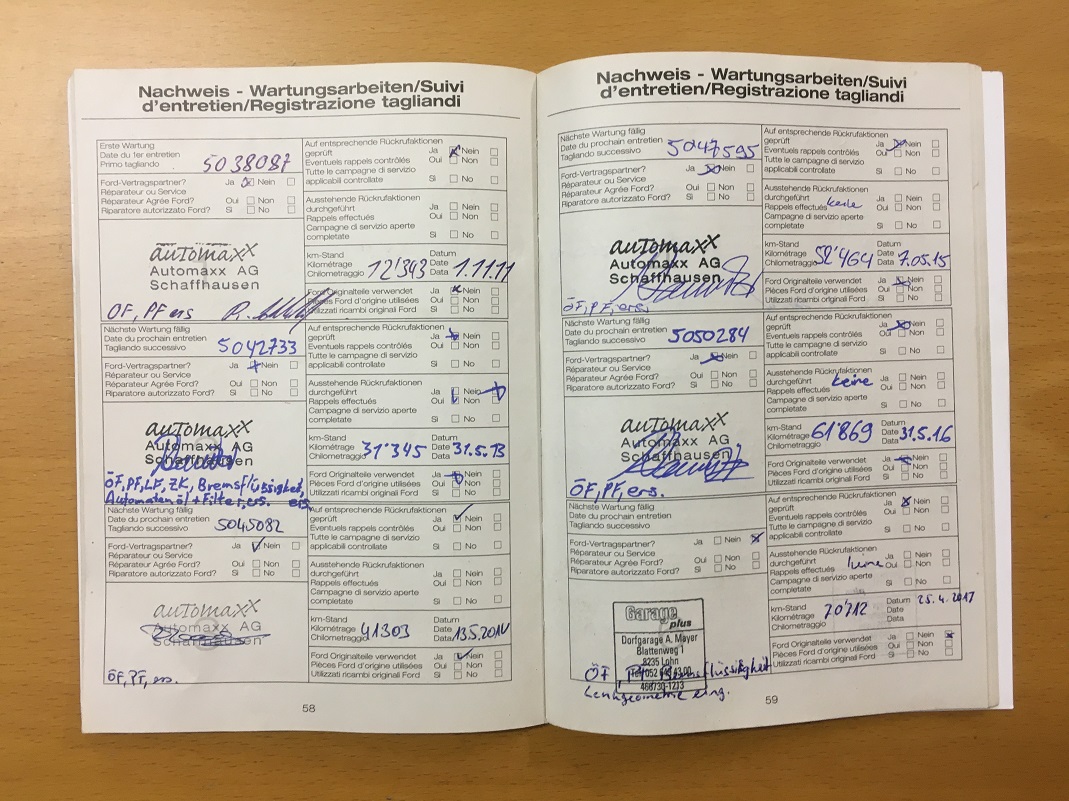 Nachweis - Wartungsarbeiten/Suivi
d'entretien/Registrazione tagliandi
Erste Wartung
Date du 1er entretien
Primo tagliando 5038087
Auf entsprechende Rückrufaktionen
geprüft Ja Nein
Eventuels rappels contrôlés Oui Non
Tutte le campagne di servizio
applicabili controllate Si No
Ford-Vertragspartner? Ja Nein
Réparateur ou Service
Réparateur Agrée Ford? Oui Non
Riparatore autorizzato Ford? Si No
Ausstehende Rückrufaktionen
durchgeführt Ja Nein
Rappels effectués Oui Non
Campagne di servizio aperte
completate Si No
automaxx
Automaxx AG
Schaffhausen
ÖF, PF ers
km-Stand Datum
Kilométrage Date
Chilometraggio 12'343 Data 1.11.11
Ford Originalteile verwendet Ja Nein
Pièces Ford d'origine utilisées Oui Non
Utilizzati ricambi original Ford Si No
Nächste Wartung fällig
Date du prochain entretien
Tagliando successivo 5042733
Auf entsprechende Rückrufaktionen
geprüft Ja Nein
Eventuels rappels contrôlés Oui Non
Tutte le campagne di servizio
applicabili controllate Si No
Ford-Vertragspartner? Ja Nein
Réparateur ou Service
Réparateur Agrée Ford? Oui Non
Riparatore autorizzato Ford? Si No
Ausstehende Rückrufaktionen
durchgeführt Ja Nein
Rappels effectués Oui Non
Campagne di servizio aperte
completate Si No
automaxx
Automaxx AG
Schaffhausen
ÖF, PF, LF, ZK, Bremsflüssigkeit,
Automatenöl + Filter, ers. ers
km-Stand Datum
Kilométrage Date
Chilometraggio 31'345 Data 31.5.13
Ford Originalteile verwendet Ja Nein
Pièces Ford d'origine utilisées Oui Non
Utilizzati ricambi original Ford Si No
Nächste Wartung fällig
Date du prochain entretien
Tagliando successivo 5045082
Auf entsprechende Rückrufaktionen
geprüft Ja Nein
Eventuels rappels contrôlés Oui Non
Tutte le campagne di servizio
applicabili controllate Si No
Ford-Vertragspartner? Ja Nein
Réparateur ou Service
Réparateur Agrée Ford? Oui Non
Riparatore autorizzato Ford? Si No
Ausstehende Rückrufaktionen
durchgeführt Ja Nein
Rappels effectués Oui Non
Campagne di servizio aperte
completate Si No
automaxx
Automaxx AG
Schaffhausen
ÖF, PF, ers.
km-Stand Datum
Kilométrage Date
Chilometraggio 41303 Data 13.5.2014
Ford Originalteile verwendet Ja Nein
Pièces Ford d'origine utilisées Oui Non
Utilizzati ricambi original Ford Si No
58
Nachweis - Wartungsarbeiten/Suivi
d'entretien/Registrazione tagliandi
Nächste Wartung fällig
Date du prochain entretien
Tagliando successivo 5047595
Auf entsprechende Rückrufaktionen
geprüft Ja Nein
Eventuels rappels contrôlés Oui Non
Tutte le campagne di servizio
applicabili controllate Si No
Ford-Vertragspartner? Ja Nein
Réparateur ou Service
Réparateur Agrée Ford? Oui Non
Riparatore autorizzato Ford? Si No
Ausstehende Rückrufaktionen
durchgeführt Ja Nein
Rappels effectués keine Oui Non
Campagne di servizio aperte
completate Si No
automaxx
Automaxx AG
Schaffhausen
ÖF, PF, ers.
km-Stand Datum
Kilométrage Date
Chilometraggio 52'464 Data 7.05.15
Ford Originalteile verwendet Ja Nein
Pièces Ford d'origine utilisées Oui Non
Utilizzati ricambi original Ford Si No
Nächste Wartung fällig
Date du prochain entretien
Tagliando successivo 5050284
Auf entsprechende Rückrufaktionen
geprüft Ja Nein
Eventuels rappels contrôlés Oui Non
Tutte le campagne di servizio
applicabili controllate Si No
Ford-Vertragspartner? Ja Nein
Réparateur ou Service
Réparateur Agrée Ford? Oui Non
Riparatore autorizzato Ford? Si No
Ausstehende Rückrufaktionen
durchgeführt Ja Nein
Rappels effectués keine Oui Non
Campagne di servizio aperte
completate Si No
automaxx
Automaxx AG
Schaffhausen
ÖF, PF, ers.
km-Stand Datum
Kilométrage Date
Chilometraggio 61'869 Data 31.5.16
Ford Originalteile verwendet Ja Nein
Pièces Ford d'origine utilisées Oui Non
Utilizzati ricambi original Ford Si No
Nächste Wartung fällig
Date du prochain entretien
Tagliando successivo
Auf entsprechende Rückrufaktionen
geprüft Ja Nein
Eventuels rappels contrôlés Oui Non
Tutte le campagne di servizio
applicabili controllate Si No
Ford-Vertragspartner? Ja Nein
Réparateur ou Service
Réparateur Agrée Ford? Oui Non
Riparatore autorizzato Ford? Si No
Ausstehende Rückrufaktionen
durchgeführt Ja Nein
Rappels effectués keine Oui Non
Campagne di servizio aperte
completate Si No
Garage
plus
Dorfgarage A. Mayer
Blattenweg 1
8235 Lohn
Tel. 052 649 43 00
468730-1213
ÖF, PF, Bremsflüssigkeit
Lenkgeometrie eing.
km-Stand Datum 25.4.2017
Kilométrage Date
Chilometraggio 70712 Data
Ford Originalteile verwendet Ja Nein
Pièces Ford d'origine utilisées Oui Non
Utilizzati ricambi original Ford Si No
59